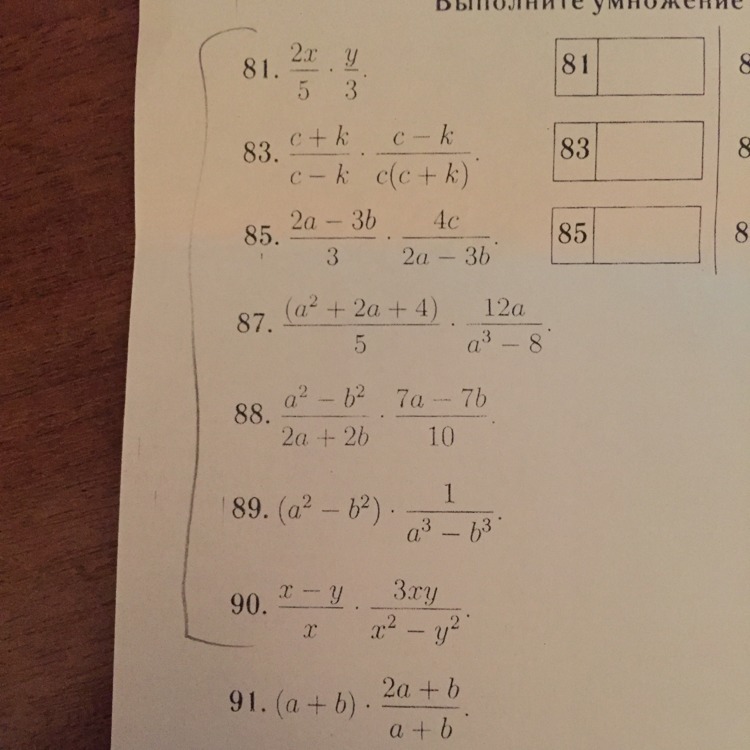 Выполните умножение
81. \frac{2x}{5} · \frac{y}{3}. 81 8
83. \frac{c + k}{c − k} · \frac{c − k}{c(c + k)}. 83 8
85. \frac{2a − 3b}{3} · \frac{4c}{2a − 3b}. 85 8
87. \frac{(a² + 2a + 4)}{5} · \frac{12a}{a³ − 8}.
88. \frac{a² − b²}{2a + 2b} · \frac{7a − 7b}{10}.
89. (a² − b²) · \frac{1}{a³ − b³}.
90. \frac{x − y}{x} · \frac{3xy}{x² − y²}.
91. (a + b) · \frac{2a + b}{a + b}.